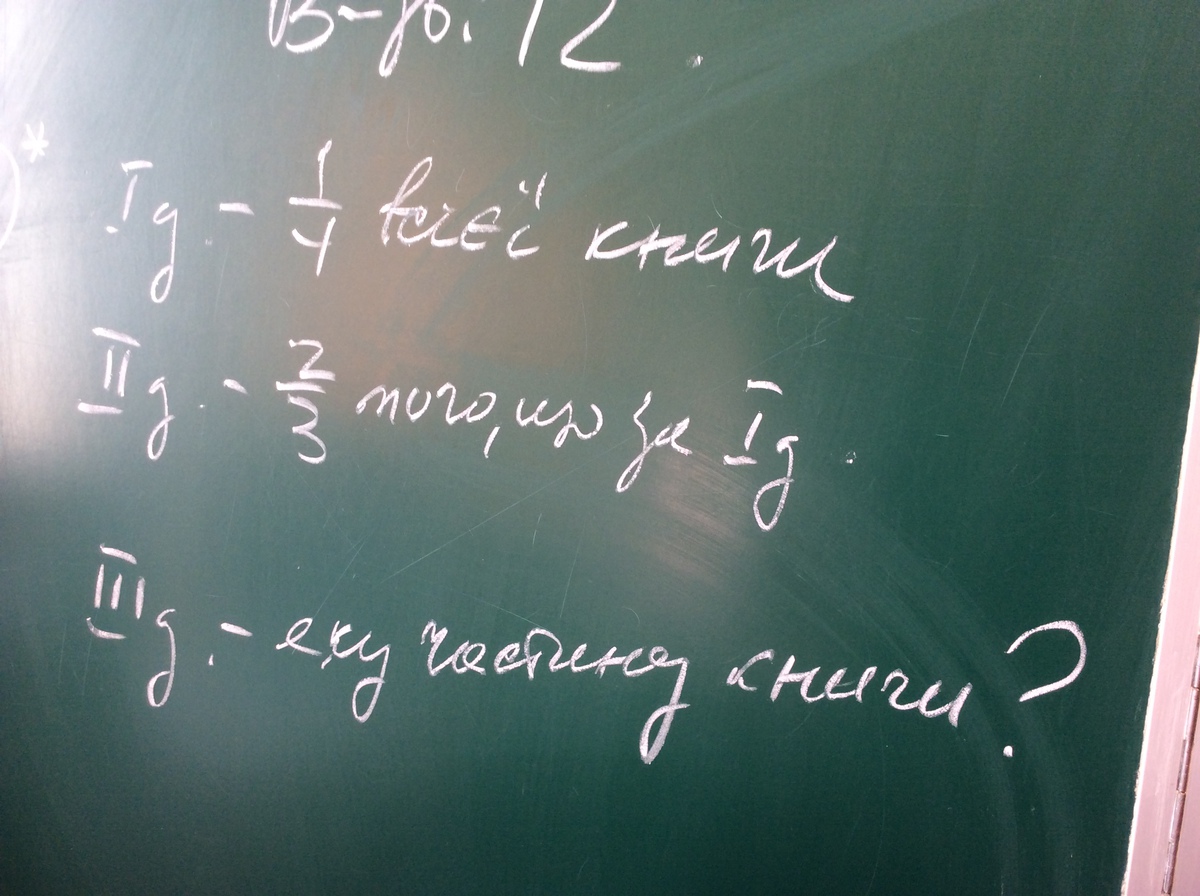 В-дь. 12.
)*
I д. - 1/4 всієї книги
II д. - 2/3 того, що за I д.
III д. - яку частину книги?